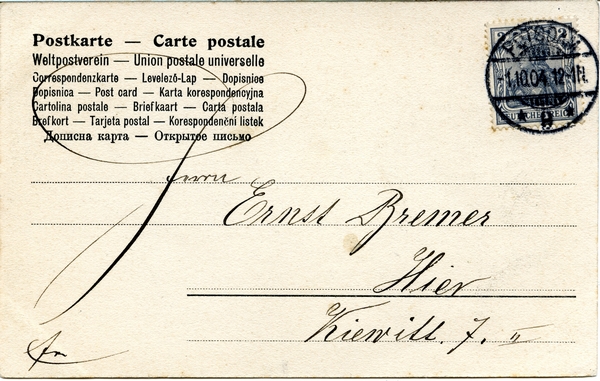 Postkarte — Carte postale
Weltpostverein — Union postale universelle
Correspondenzkarte — Levelező-Lap — Dopisnice
Dopisnica — Post card — Karta korespondencyjna
Cartolina postale — Briefkaart — Carta postala
Brefkort — Tarjeta postal — Korespondenční lístek
Дописна карта — Открытое письмо
POTSDAM
1.10.04.12-1N.
* 9 *
DEUTSCHES REICH
Herrn
Ernst Bremer
Hier
Kiewitt. 7. II